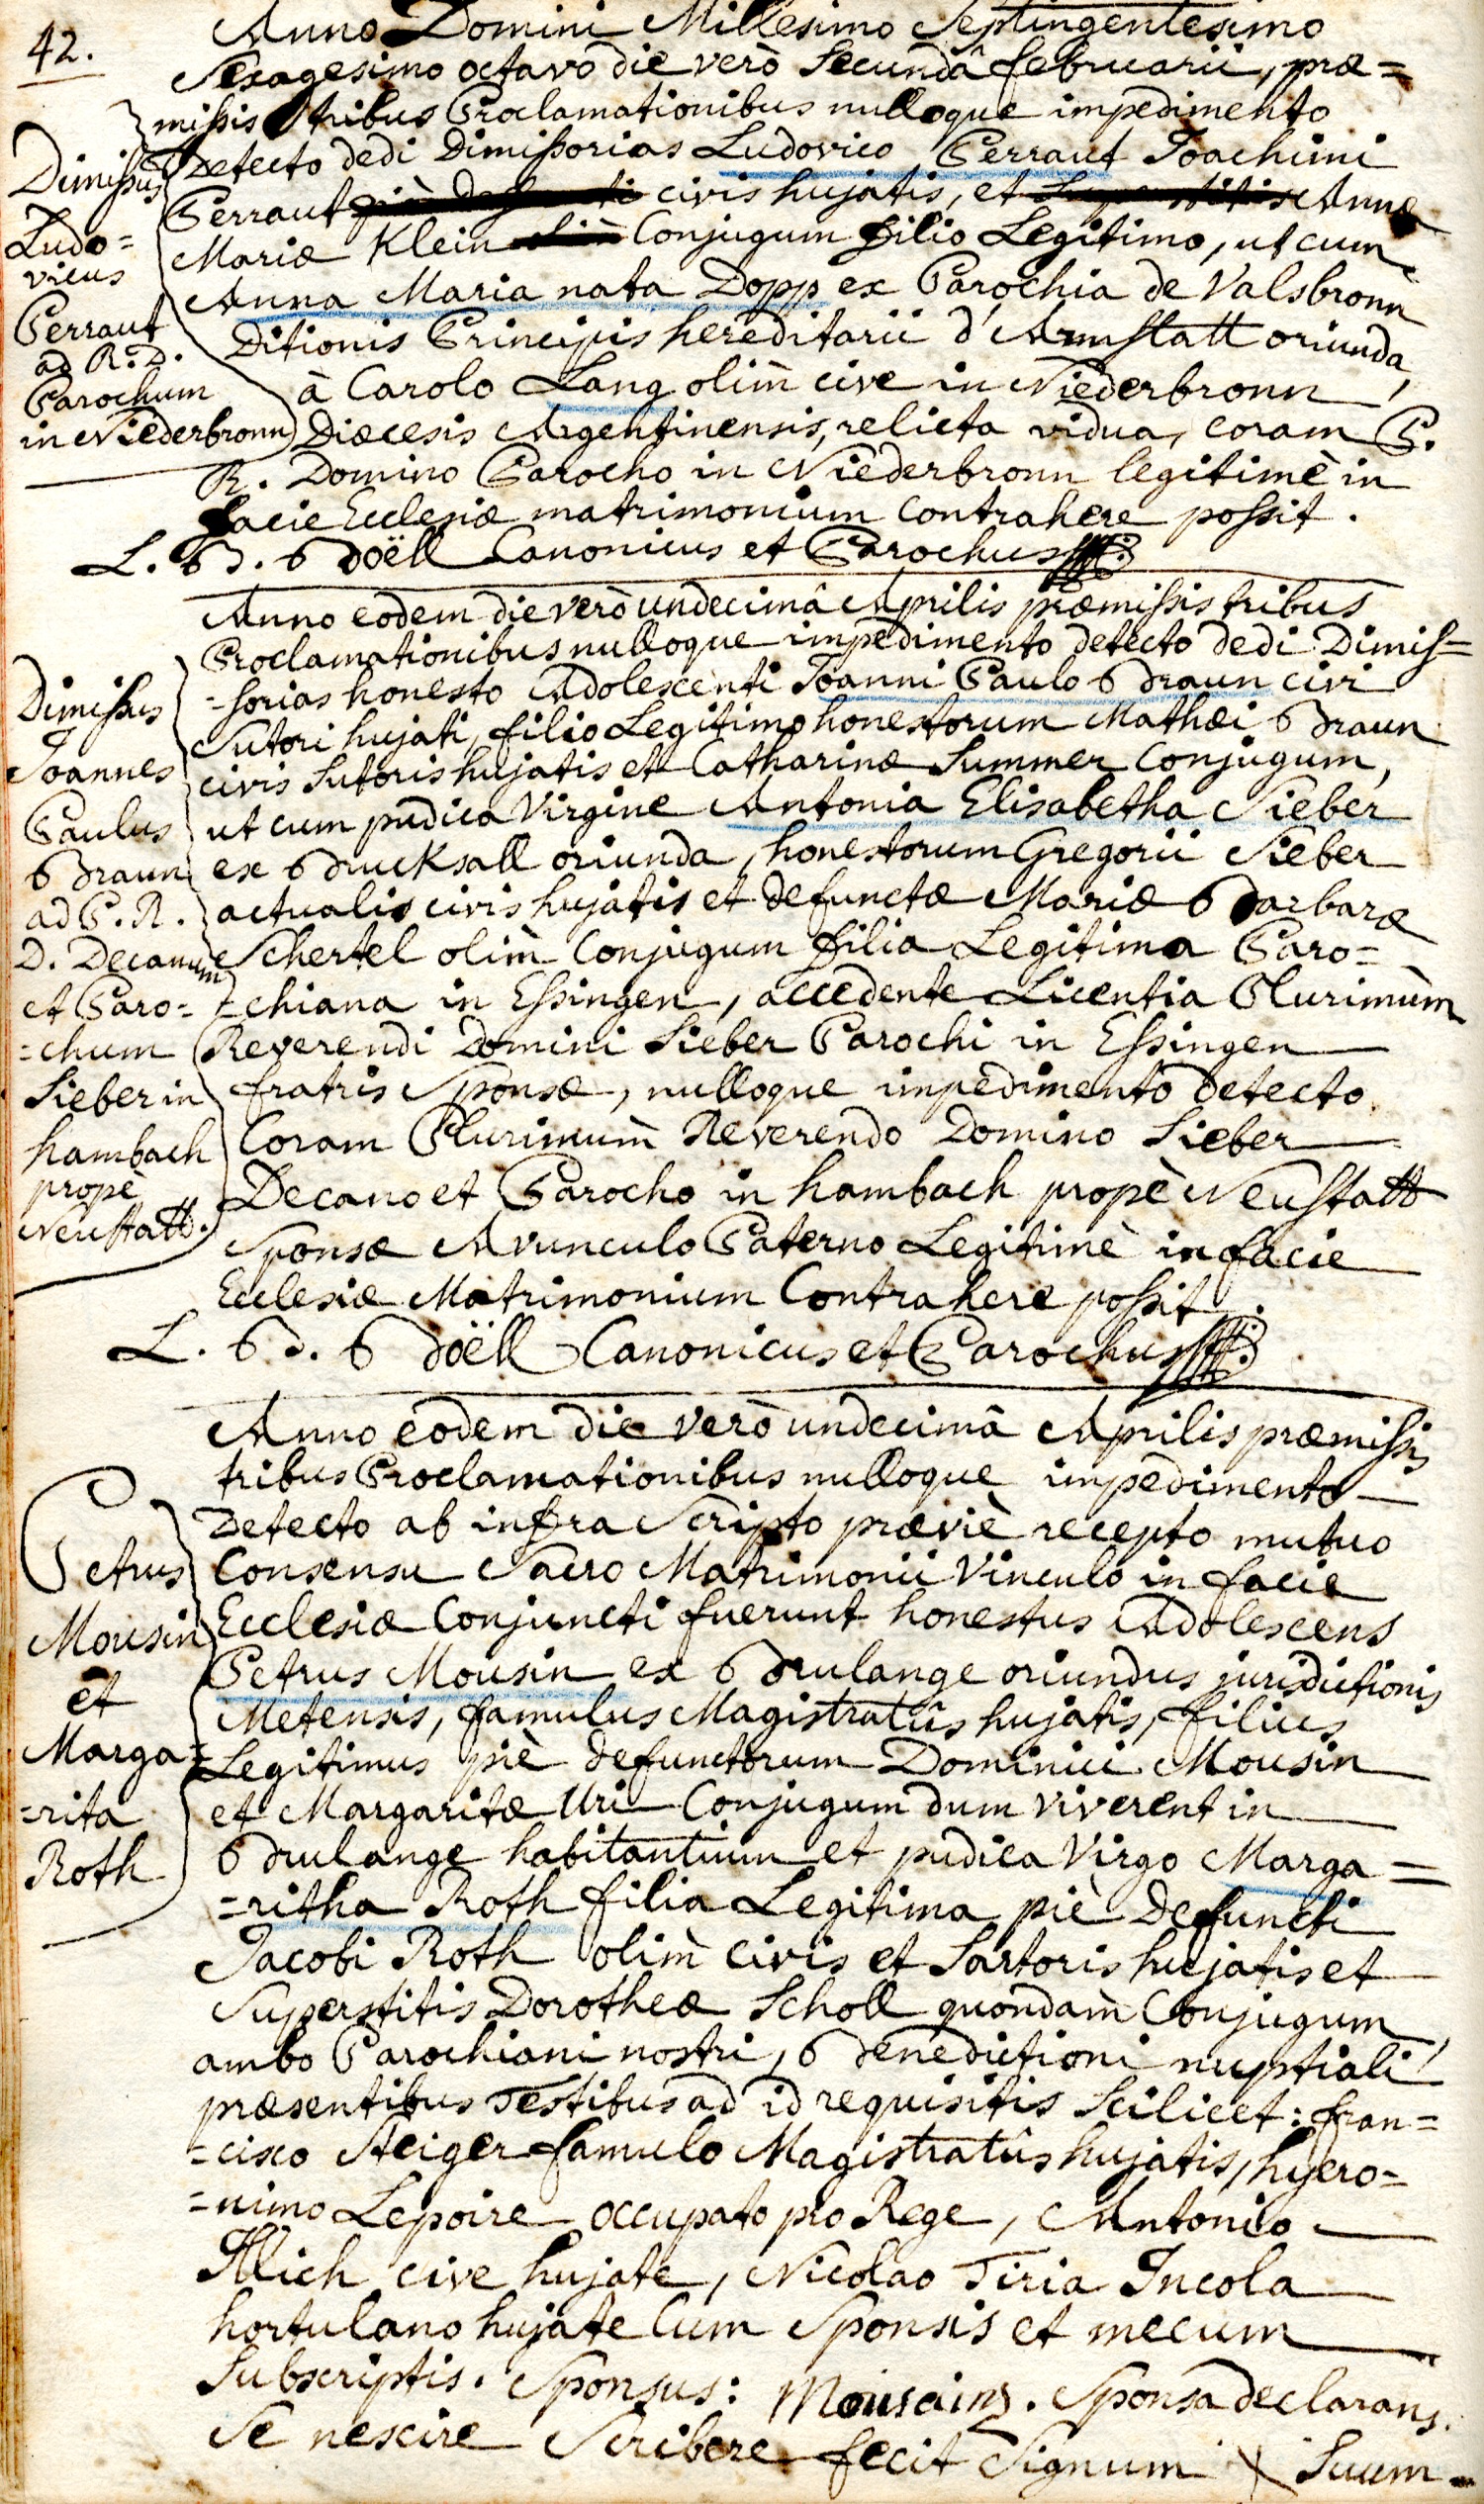 42.
Anno Domini Millesimo Septingentesimo
Sexagesimo octavo die verò secundâ februarii, præ=
missis tribus Proclamationibus nulloque impedimento
Detecto dedi Dimissorias Ludovico Perraut Joachimi
Perraut piè defuncti civis hujatis, et superstitis Annæ
Mariæ Klein olim Conjugum filio Legitimo, ut cum
Anna Maria nata Dopp ex Parochia de Valsbronn
Ditionis Principis hereditarii d'Armstatt oriunda,
à Carolo Lang olim̀ cive in Niederbronn,
Diæcesis Argentinensis, relicta vidua, coram P.
R. Domino Parocho in Niederbronn legitimè in
facie Ecclesiæ matrimonium contrahere possit.
L. B. Boëll Canonicus et Parochus
Dimissus
Ludo=
vicus
Perraut
ad R. D.
Parochum
in Niederbronn
Anno eodem die verò undecimâ Aprilis præmissis tribus
Proclamationibus nulloque impedimento detecto dedi Dimis=
=sorias honesto Adolescenti Joanni Paulo Braun civi
Sutori hujati, filio Legitimo honestorum Mathæi Braun
civis sutoris hujatis et Catharinæ Summer Conjugum,
ut cum pudica Virgine Antonia Elisabetha Sieber
ex Brucksall oriunda, honestorum Gregorii Sieber
actualis civis hujatis et defunctæ Mariæ Barbaræ
Schertel olim̀ Conjugum filia Legitima Paro=
=chiana in Essingen, accedente Licentia Plurimum̀
Reverendi Domini Sieber Parochi in Essingen
fratris Sponsæ, nulloque impedimento detecto
Coram Plurimum̀ Reverendo Domino Sieber
Decano et Parocho in hambach propè Neustatt
Sponsæ Avunculo Paterno Legitimè in facie
Ecclesiæ Matrimonium Contrahere possit.
L. B. Boëll Canonicus et Parochus
Dimissus
Joannes
Paulus
Braun
ad P. R.
D. Decanum
et Paro=
=chum
Sieber in
hambach
propè
Neustatt.
Anno eodem die verò undecimâ Aprilis præmissis
tribus Proclamationibus nulloque impedimento
Detecto ab infra Scripto præviè recepto mutuo
Consensu Sacro Matrimonii Vinculo in facie
Ecclesiæ Conjuncti fuerunt honestus Adolescens
Petrus Mousin ex Brulange oriundus jurisdictionis
Metensis, famulus Magistratûs hujatis, filius
Legitimus piè defunctorum Dominici Mousin
et Margaritæ Uri Conjugum dum viverent in
Brulange habitantium et pudica Virgo Marga=
=ritha Roth filia Legitima piè Defuncti
Jacobi Roth olim̀ civis et Sartoris hujatis et
Superstitis Dorotheæ Scholl quondam̀ Conjugum,
ambo Parochiani nostri, Benedictioni nuptiali
præsentibus Testibus ad id requisitis scilicet: fran=
=cisco Steiger famulo Magistratûs hujatis, hyero=
=nimo Lepoire occupato pro Rege, Antonio
Illich cive hujate, Nicolao Tiria Incola
hortulano hujate Cum Sponsis et mecum
Subscriptis. Sponsus: Mousains. Sponsa declarans
Se nescire Scribere fecit Signum X Suum
Petrus
Mousin
et
Marga=
=rita
Roth